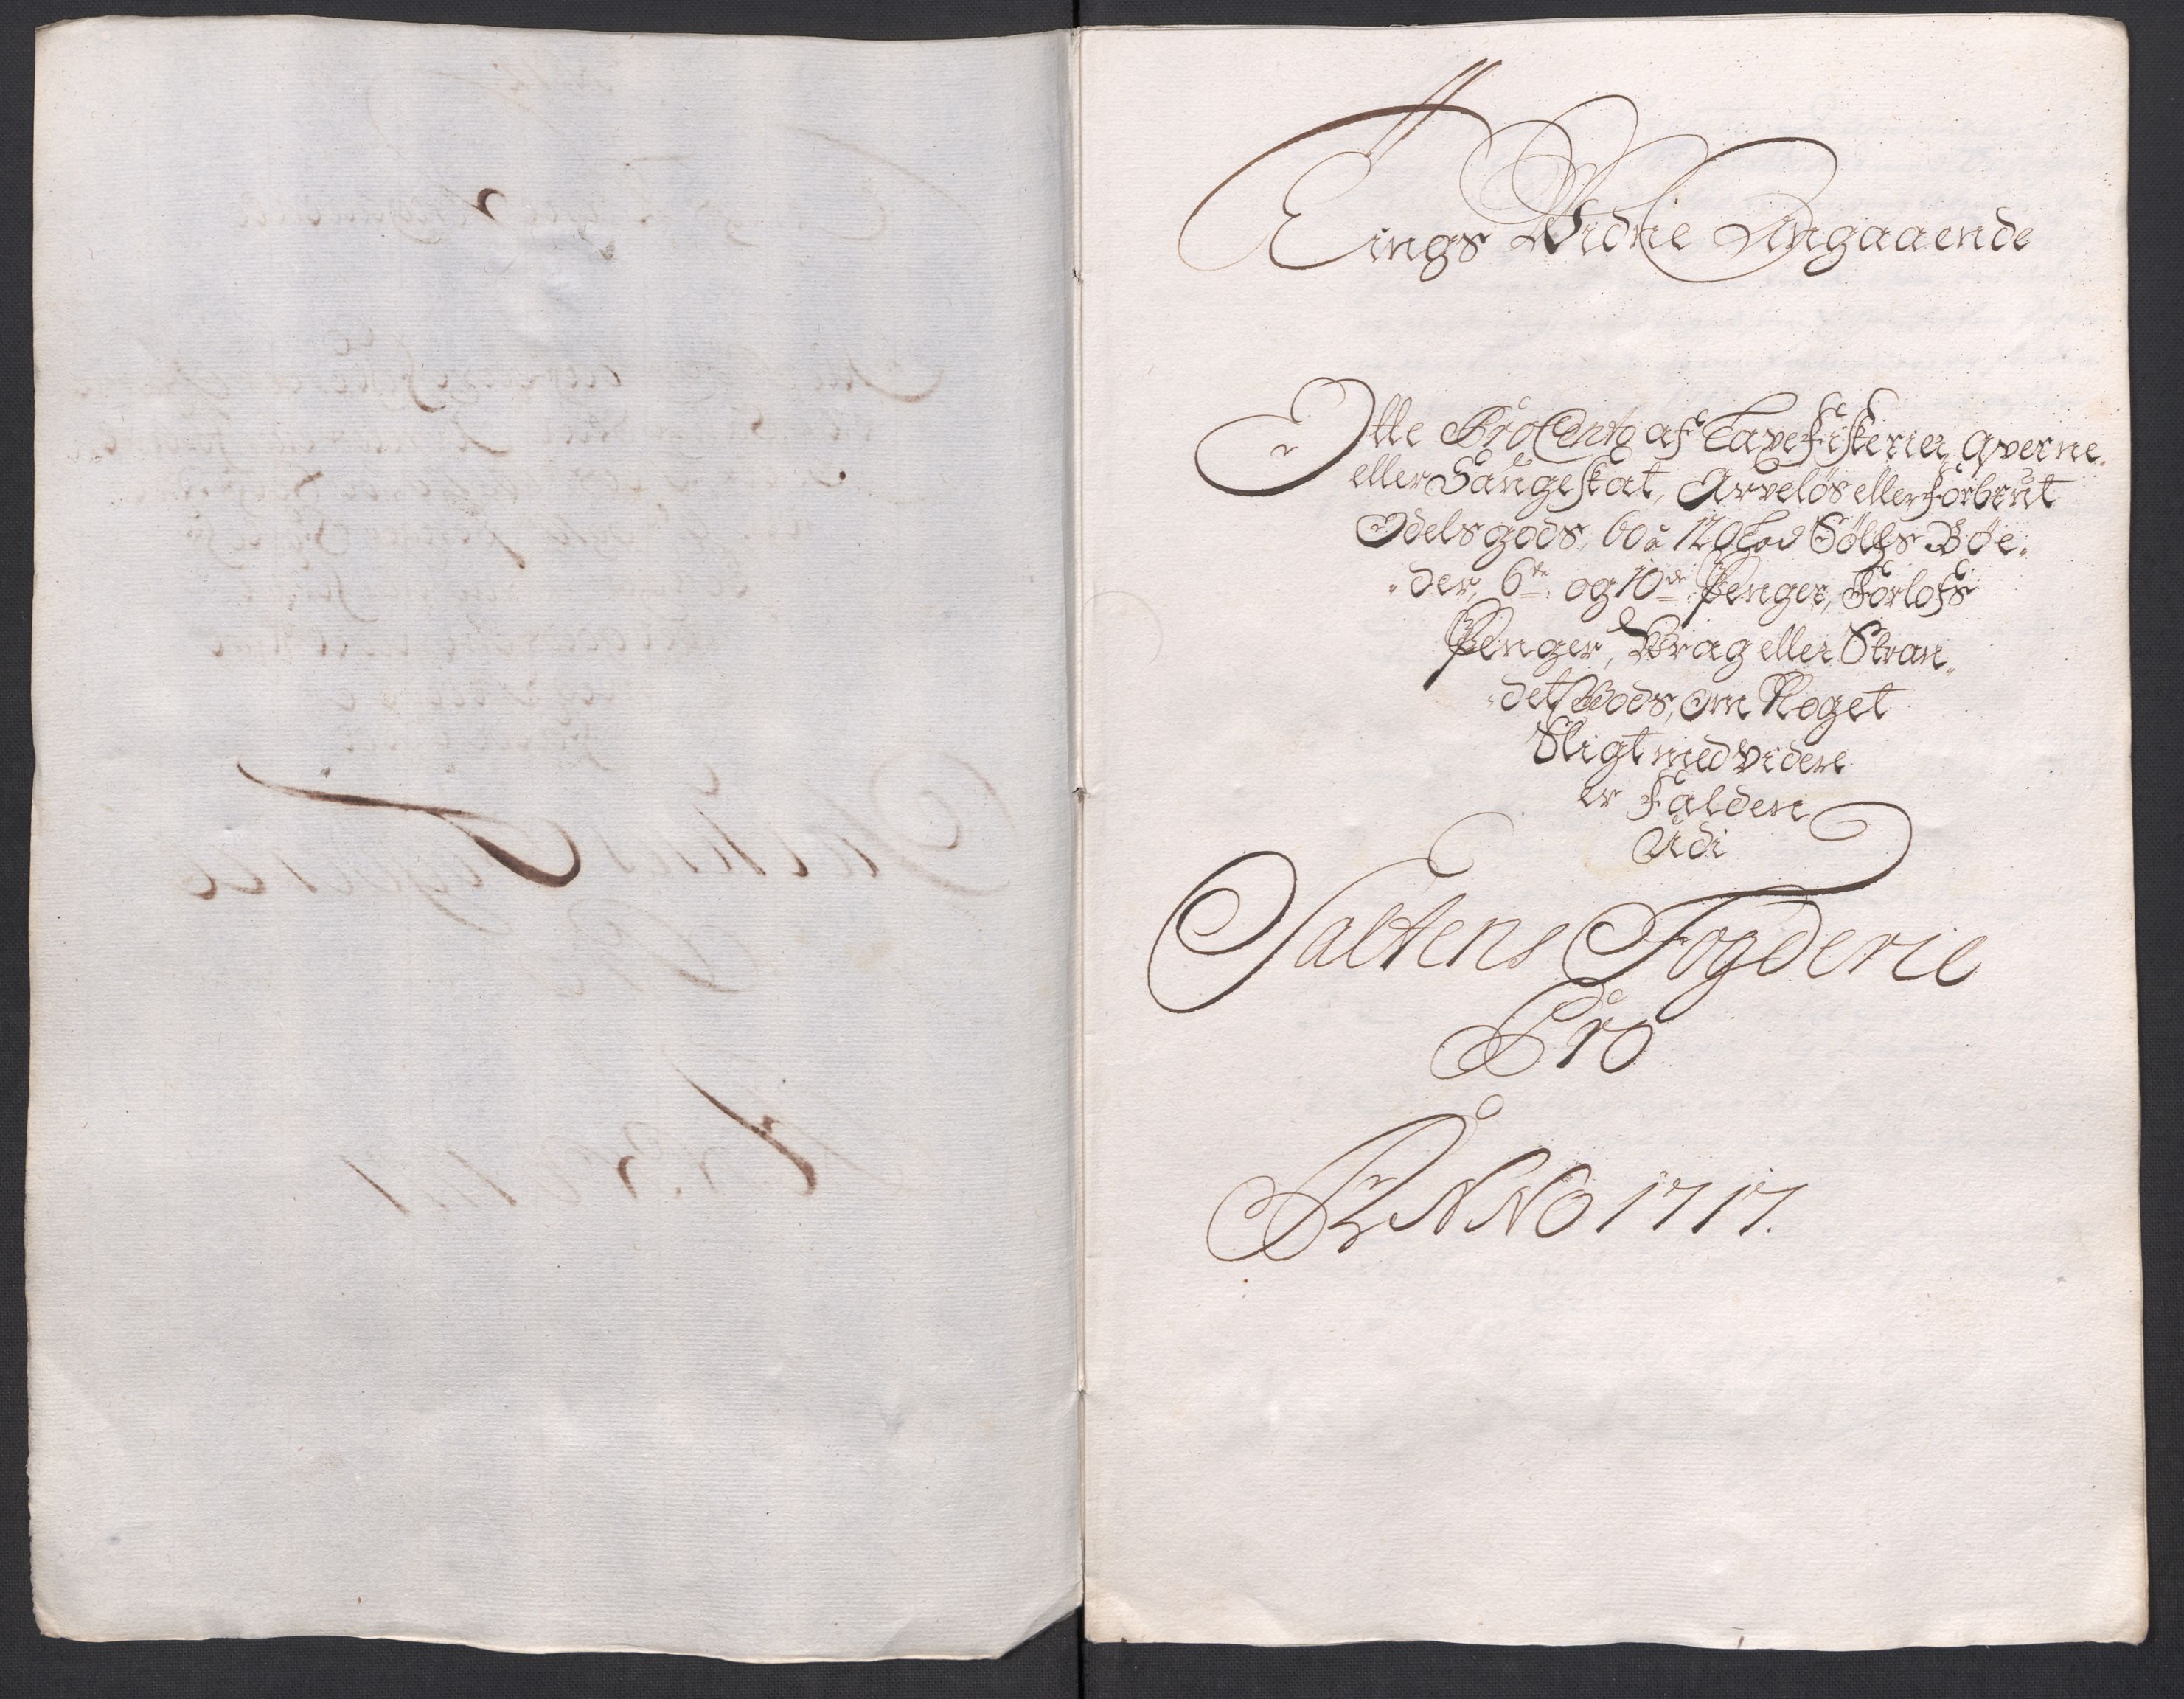 Tings Vidne Angaaende
Otte ProCento af Laxefiskerier, Qverne
eller Saugeskat, Arveløs eller Forbrut
Odelsgods, 60 a 120 Lod Sölfs Bøe-
-der, 6te og 10de Penger, Forlofs
Penger, Vrag eller Stran-
-det Gods, om Noget
Sligt med videre
er Falden
Udi
Saltens Fogderie
Pro
ANNO 1717.